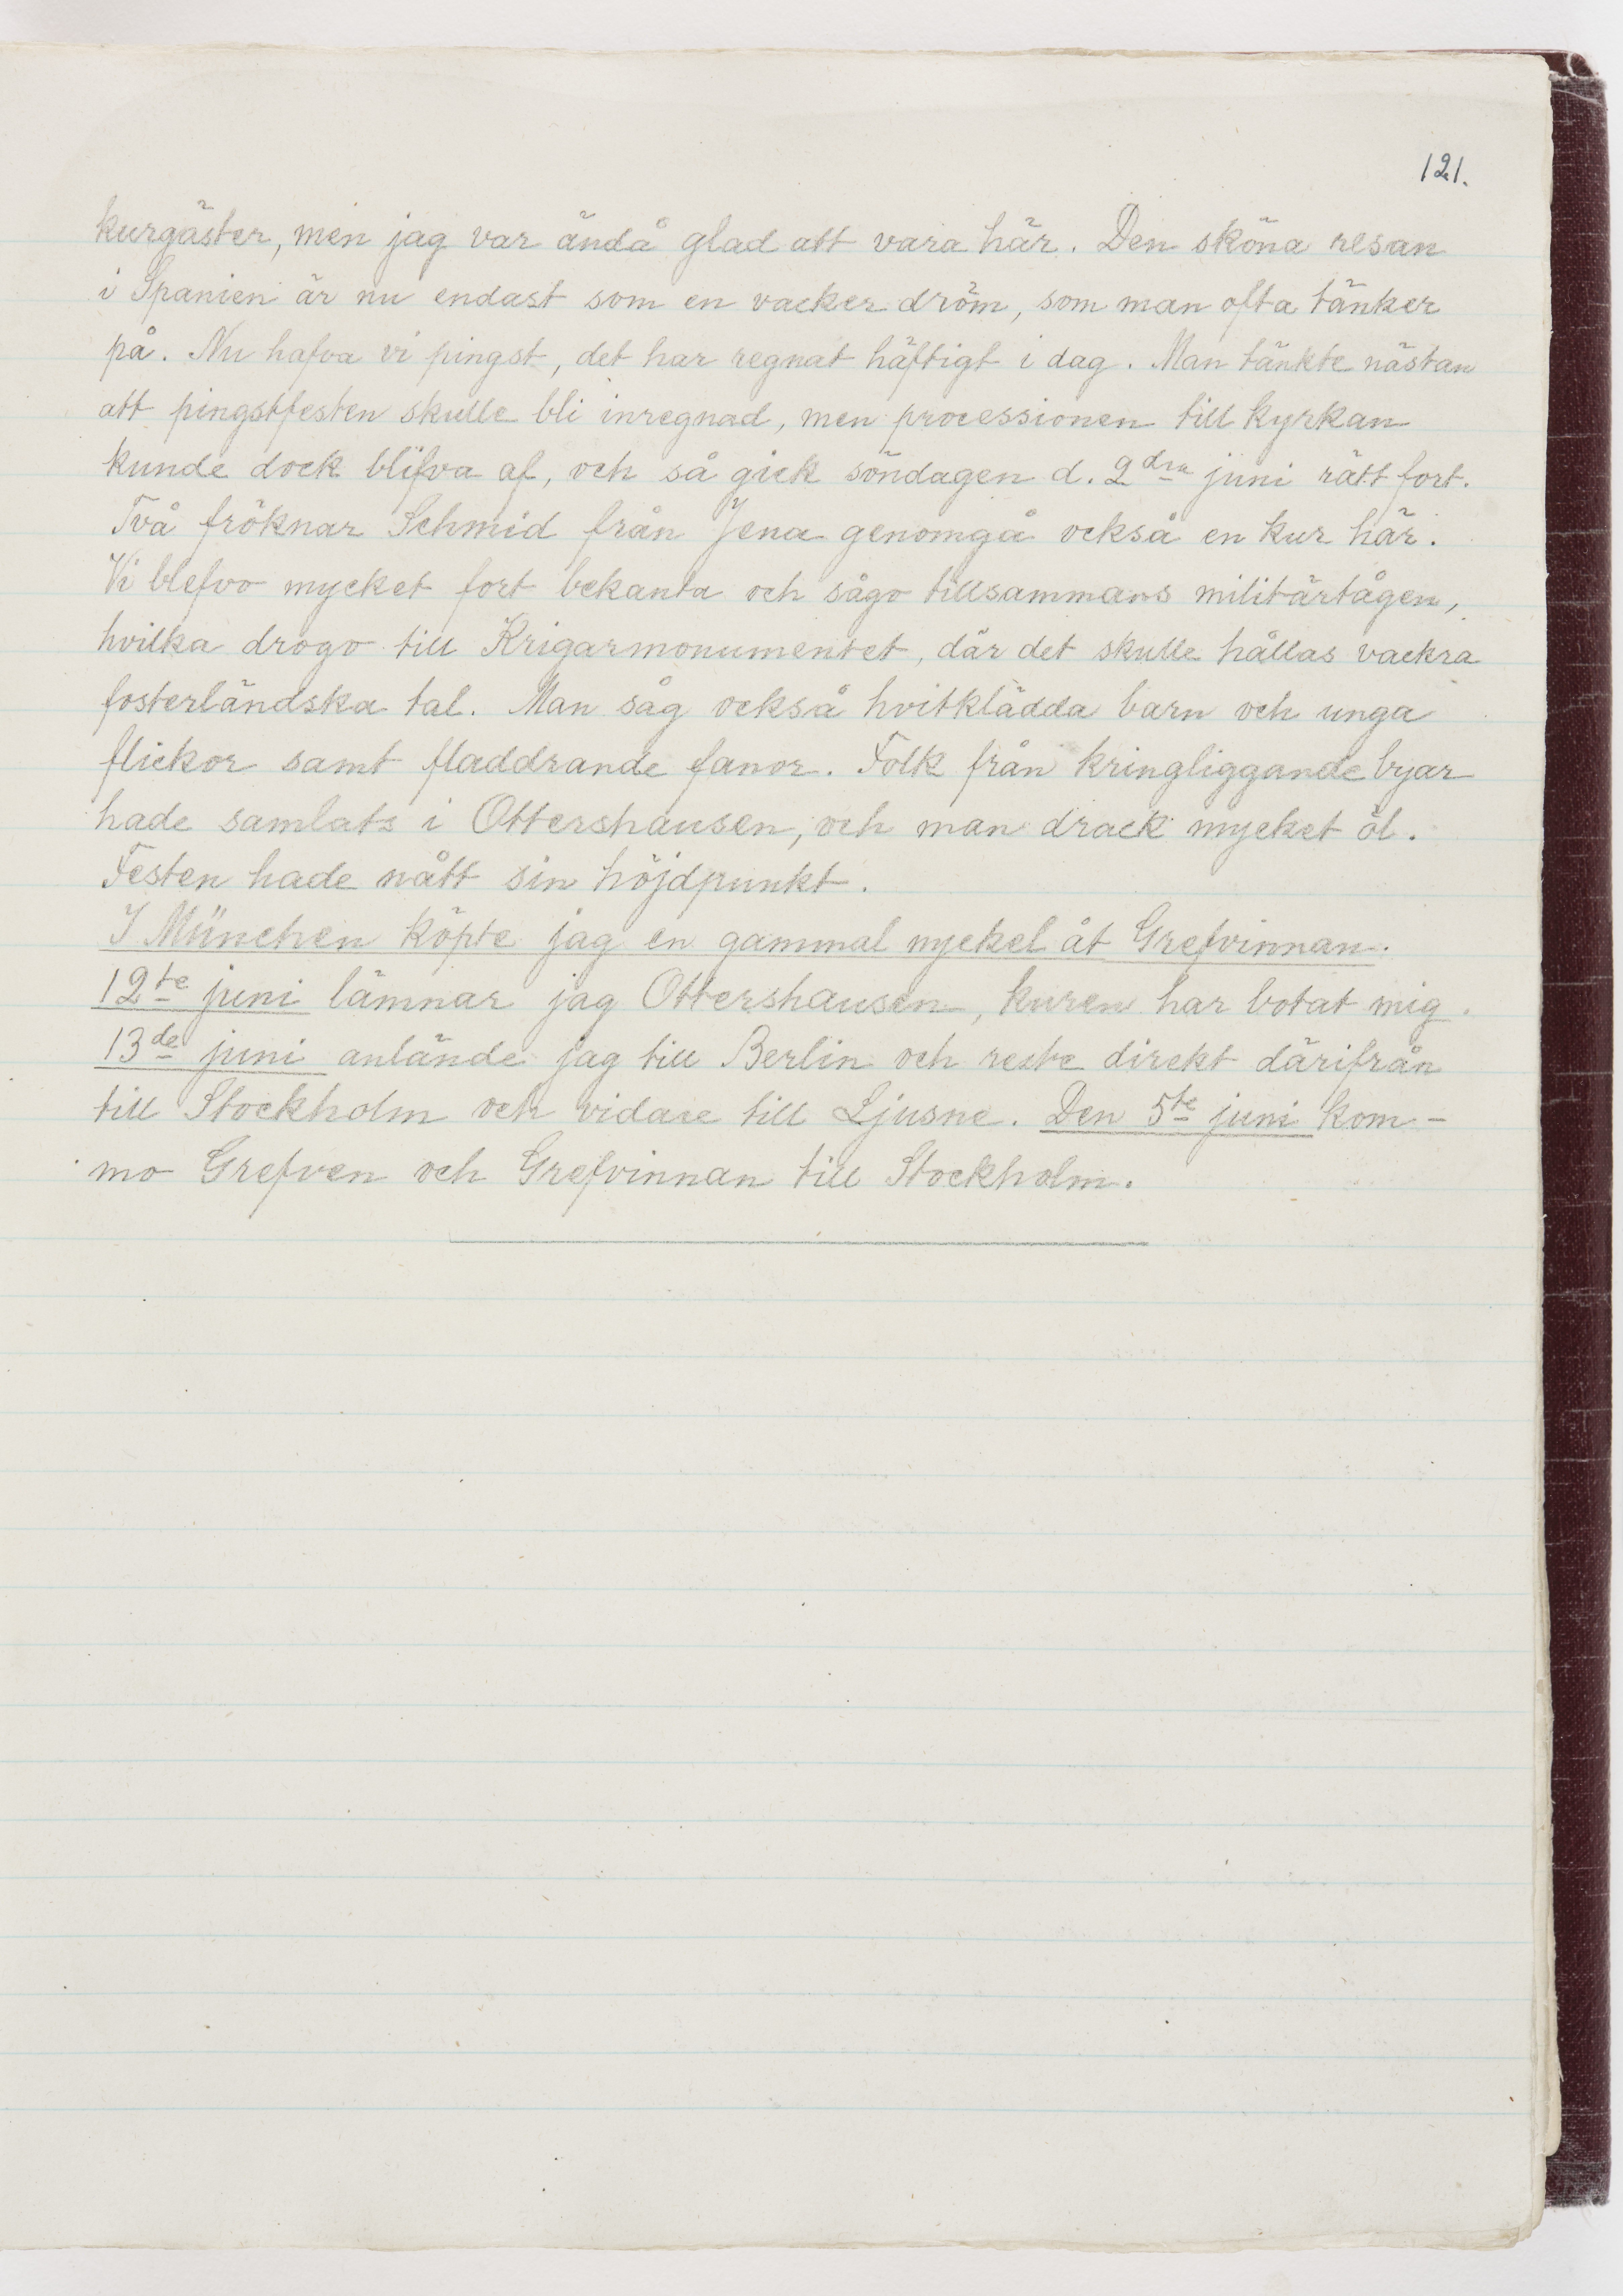 121.
kurgäster, men jag var ändå glad att vara här. Den sköna resan
i Spanien är nu endast som en vacker dröm, som man ofta tänker
på. Nu hafva vi pingst, det har regnat häftigt i dag. Man tänkte nästan
att pingstfesten skulle bli inregnad, men processionen till kyrkan
kunde dock blifva af, och så gick söndagen d. 2dra juni rätt fort.
Två fröknar Schmid från Jena genomgå också en kur här.
Vi blefvo mycket fort bekanta och sågo tillsammans militärtågen,
hvilka drogo till Krigarmonumentet, där det skulle hållas vackra
fosterländska tal. Man såg också hvitklädda barn och unga
flickor samt fladdrande fanor. Folk från kringliggande byar
hade samlats i Ottershausen, och man drack mycket öl.
Festen hade nått sin höjdpunkt.
I München köpte jag en gammal nyckel åt Grefvinnan.
12te juni lämnar jag Ottershausen, kuren har botat mig.
13de juni anlände jag till Berlin och reste direkt därifrån
till Stockholm och vidare till Ljusne. Den 5te juni kom-
mo Grefven och Grefvinnan till Stockholm.